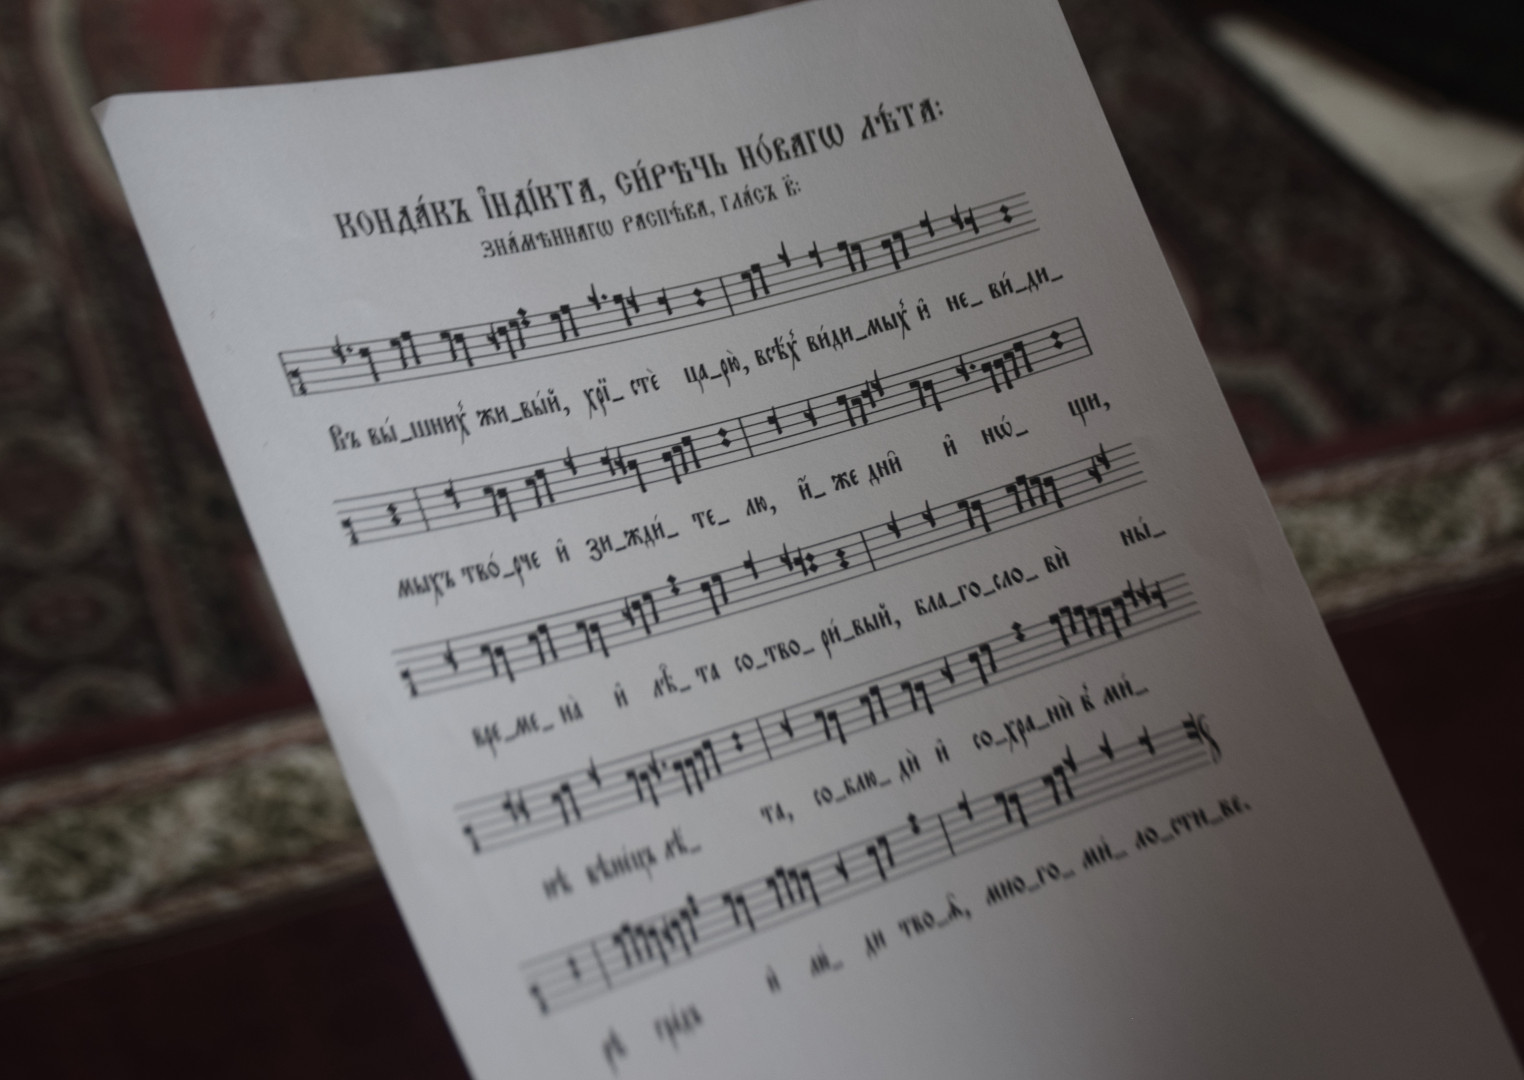 Конда́къ і҆ндї́кта, си́рѣчь но́вагѡ лѣ́та:
Зна́мѣннагѡ распѣ́ва, гла́съ в҃:
Въ вы́_шних̾ жи_вы́й, хрⷭ҇ї_стѐ ца_рю̀, всѣ́х̾ ви́ди_мых̾ и҆ не_ ви́_ди_
мыхъ тво́_рче и҆ зи_жди́_ те_ лю, и҆̀_ же дни̑ и҆ нѡ́_ щи,
вре_ме_ на̀ и҆ лѣ̑_ та со_тво_ ри́_вый, бла_го_сло_ вѝ ны́_
нѣ вѣне́цъ лѣ́_ та, со_блю_ дѝ и҆ со_хра_нѝ в̾ ми́_
рѣ гра́дъ и҆ лю́_ ди тво_ѧ̑, мно_го_ ми́_ ло_сти_ве.